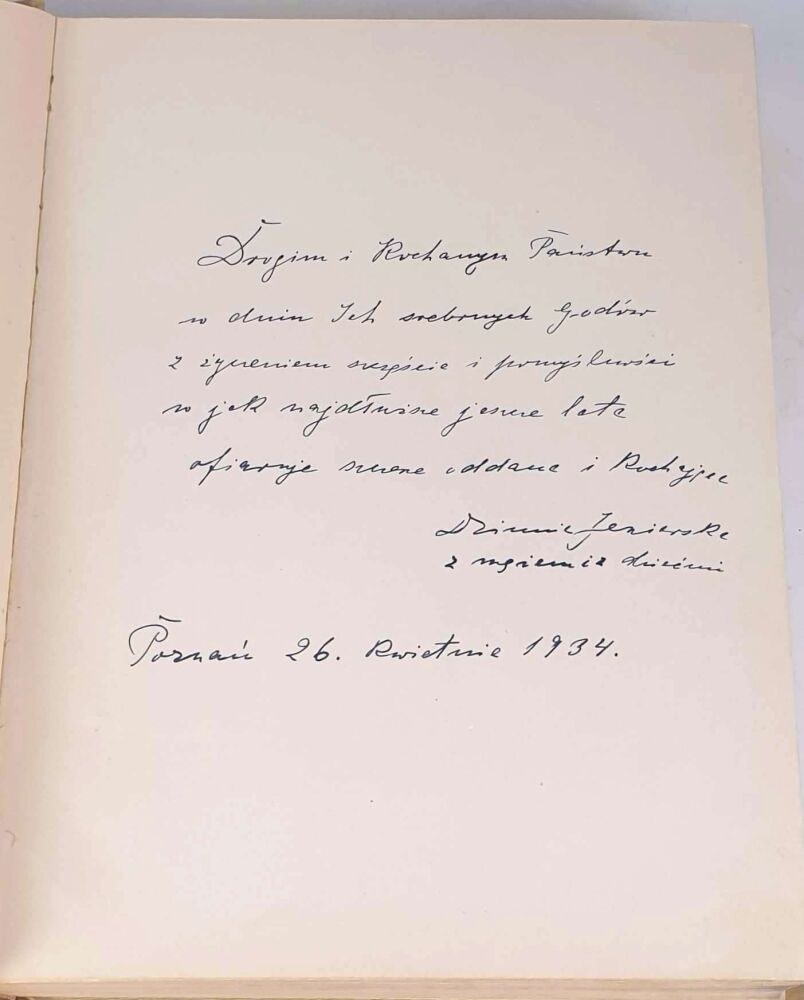 Drogim i Kochanym Państwu
w dniu Ich srebrnych Godów
z życzeniem szczęścia i pomyślności
w jak najdłuższe jeszcze lata
ofiaruje szczerze oddana i Kochająca
Jezierska
z mężem i z dziećmi
Poznań 26. Kwietnia 1934.